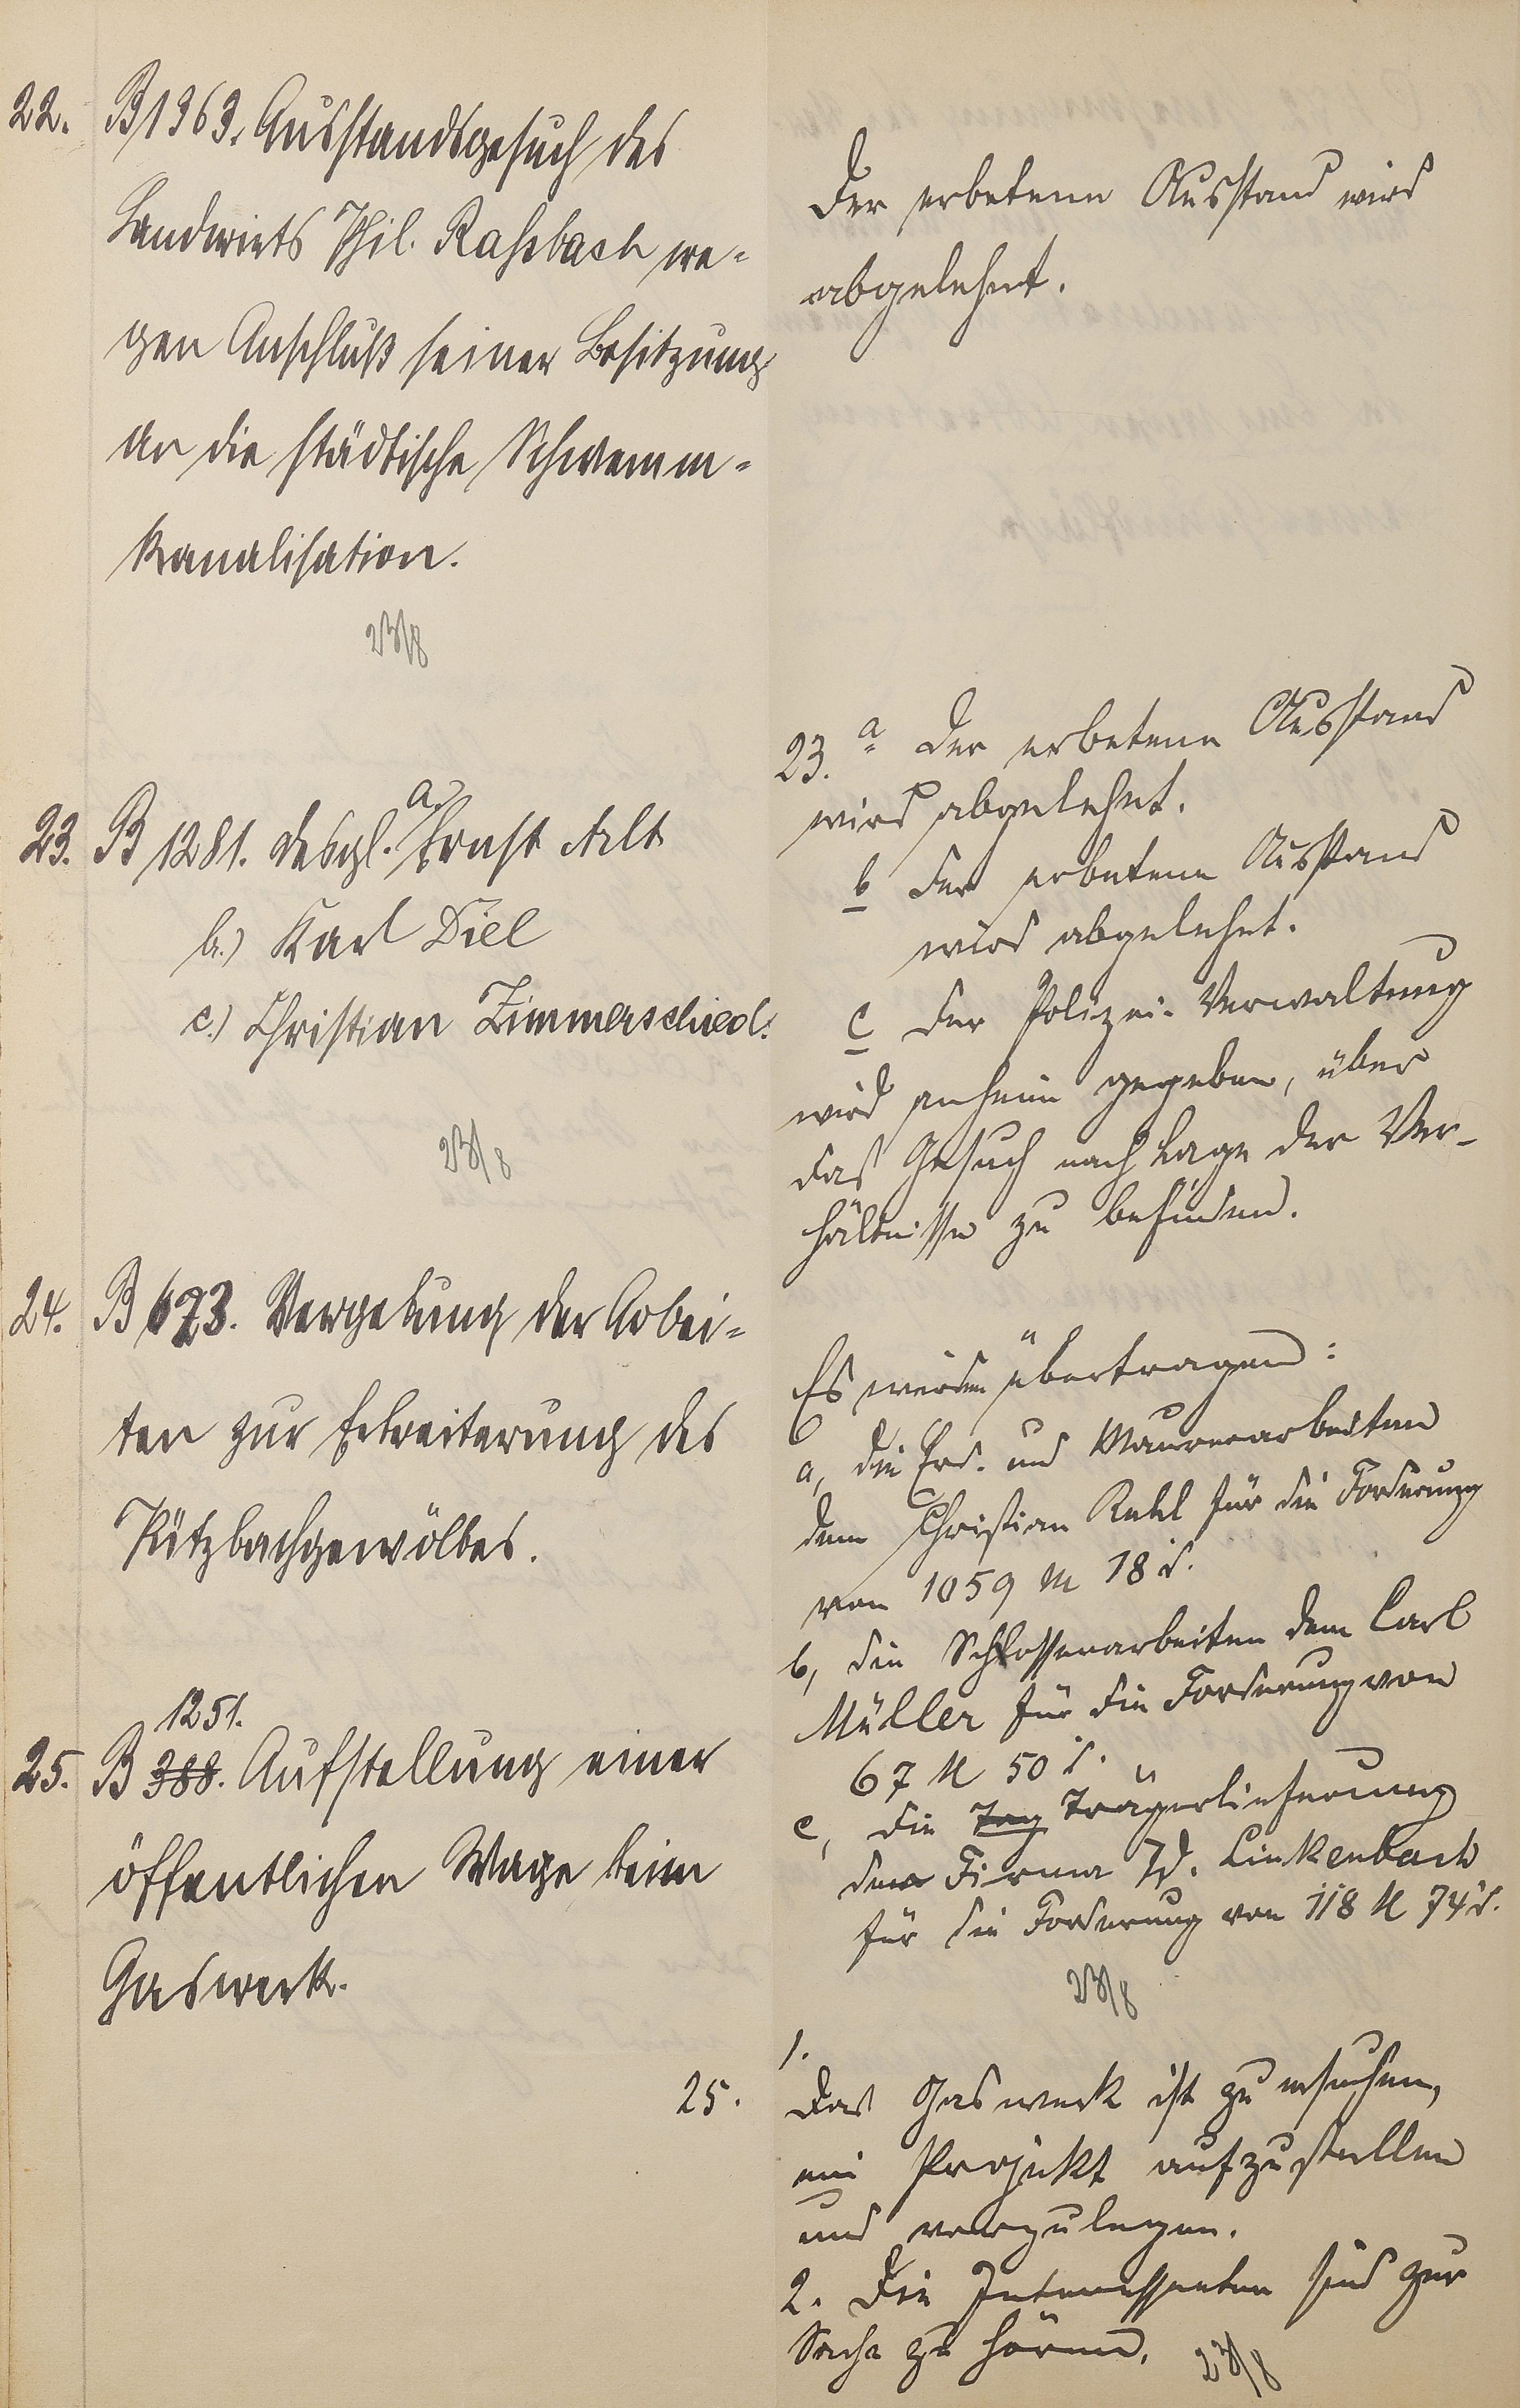 22. B 1363. Ausstandsgesuch des
Landwirts Phil. Rahsbach we-
gen Anschluß seiner Besitzung
an die städtische Schwemm-
kanalisation.
23/8
Der erbetene Ausstand wird
abgelehnt.
23. B 1281. desgl. a.) Ernst Alt
b.) Karl Diel
c.) Christian Zimmerschied.
23/8
23. a Der erbetene Ausstand
wird abgelehnt.
b Der erbetene Ausstand
wird abgelehnt.
c Der Polizei-Verwaltung
wird anheim gegeben, über
das Gesuch nach Lage der Ver-
hältnisse zu befinden.
24. B 673. Vergebung der Arbei-
ten zur Erbreiterung des
Pützbachgewölbes.
Es werden übertragen:
a, die Erd- und Maurerarbeiten
dem Christian Kehl für die Forderung
von 1059 M 18 d.
b, die Schlosserarbeiten dem Carl
Müller für die Forderung von
67 M 50 d.
c, die Trägerlieferung
der Firma Jd. Linkenbach
für die Forderung von 118 M 74 d.
23/8
25. B 388. 1251. Aufstellung einer
öffentlichen Wage beim
Gaswerk.
25. 1.
Das Gaswerk ist zu ersuchen,
ein Projekt aufzustellen
und vorzulegen.
2. Die Interessenten sind zur
Sache zu hören.
23/8